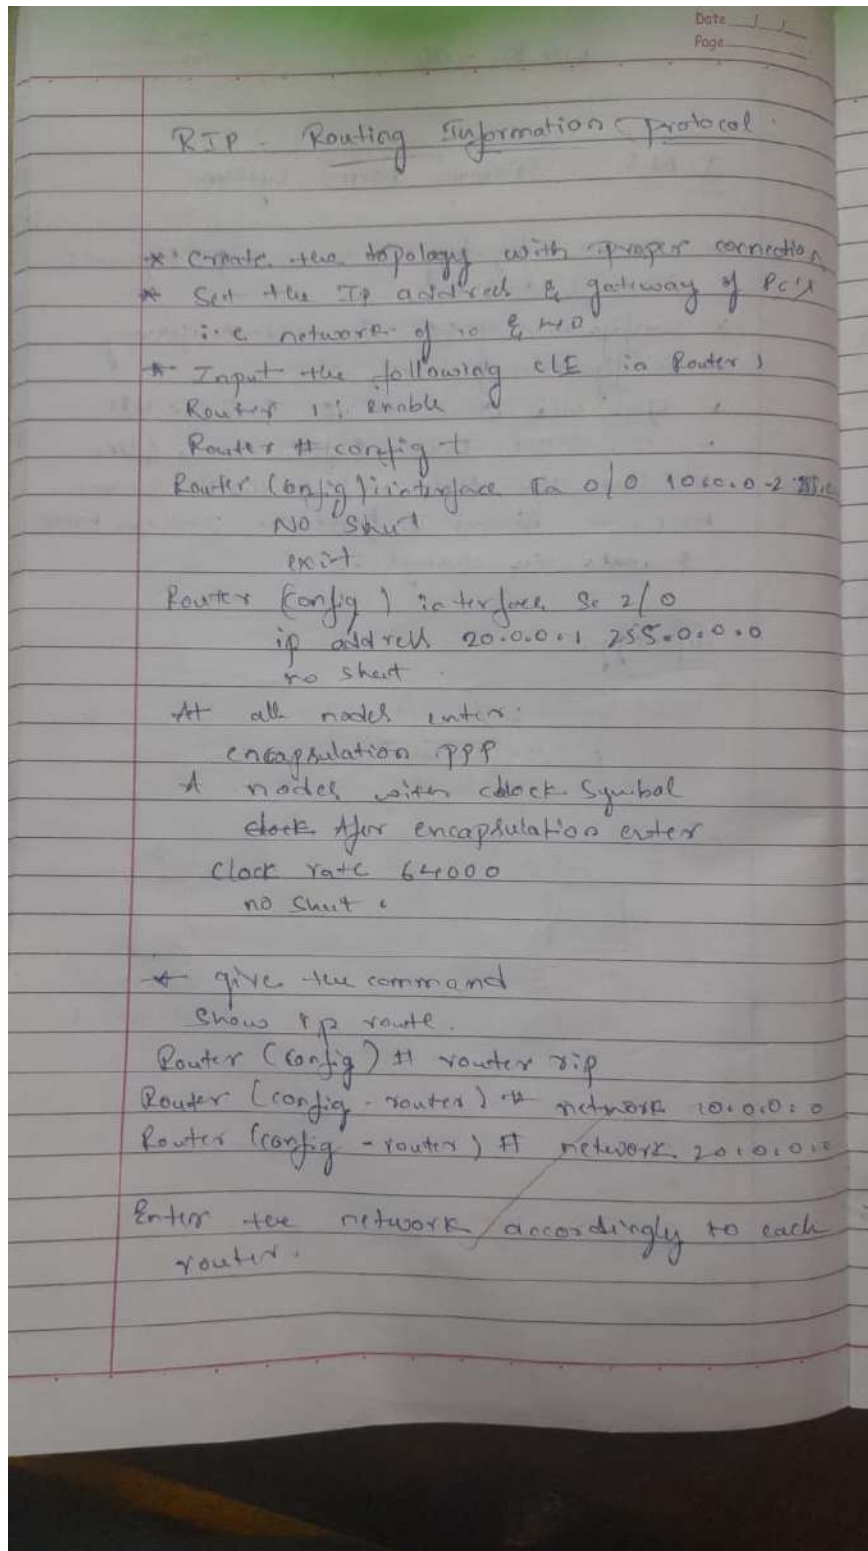 Date
Page
RIP - Routing Information Protocol.
* Create the topology with proper connection
* Set the IP address & gateway of PC's
i.e network of 10 & 40
* Input the following CLI in Router 1
Router 1: enable
Router # config t
Router (config) : interface Fa 0/0 10.0.0.2 255.
No shut
exit
Router (config) interface Se 2/0
ip address 20.0.0.1 255.0.0.0
no shut.
At all nodes enter:
encapsulation PPP
A nodes with clock symbol
clock After encapsulation enter
Clock rate 64000
no shut.
* give the command
Show ip route.
Router (config) # router rip
Router (config - router) # network 10.0.0.0
Router (config - router) # network 20.0.0.0
Enter the network accordingly to each
router.